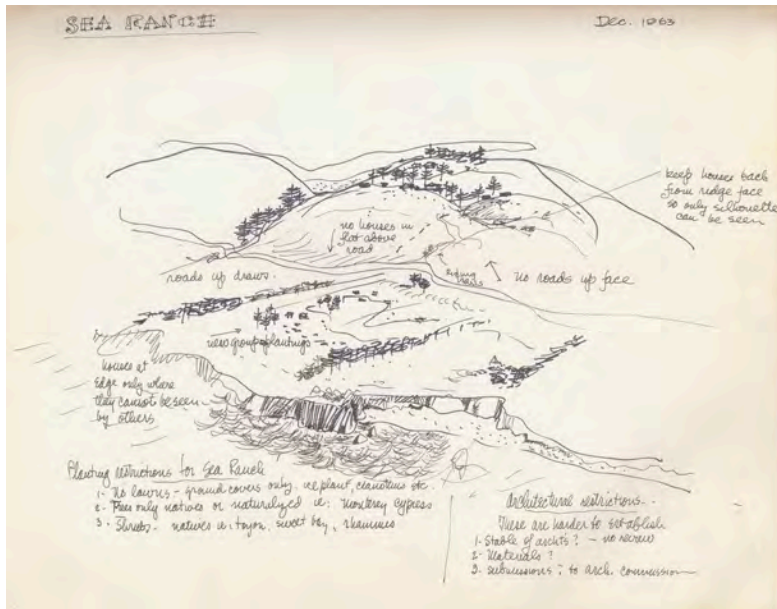 SEA RANCH
Dec. 1963
keep houses back
from ridge face
so only silhouette
can be seen
no houses in
flat above
road
roads up draws.
riding trails
no roads up face
new group plantings
houses at
edge only where
they cannot be seen
by others
Planting restrictions for Sea Ranch
1- No lawns - ground covers only, ice plant, ceanothus etc.
2- Trees only natives or naturalized ie: Monterey Cypress
3- Shrubs - natives ie: toyon, sweet bay, rhamnus
Architectural restrictions..
These are harder to establish
1- Stable of archts? - no
2- Materials?
3- Submissions: to arch. commission